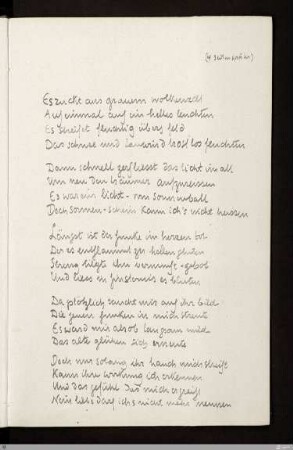 Es zuckt aus grauem wolkenzelt
Auf einmal auf ein helles leuchten
Es streift feurig übers feld
Das schnee und tauwind trostlos feuchten
Dann schnell zerfliesst das licht im all
Um neu den träumer aufzuwecken
Es war ein licht · von sonnenball
Doch sonnen-schein kann ich's nicht heissen
Längst ist der funke im herzen tot
Der es entflammt zu hellen gluten
Streng hilft ihm vernunft-gebot
Und liess in finsternis es bluten
Da plötzlich taucht mir auf ihr bild
Die jenen funken in mich streute
Es ward mir als ob langsam mild
Das alte glühen sich erneute
Doch nur solang ihr hauch mich streift
Kann ihre wirkung ich erkennen
Und das gefühl das mich ergreift
Nein liebe darf ich's nicht mehr nennen